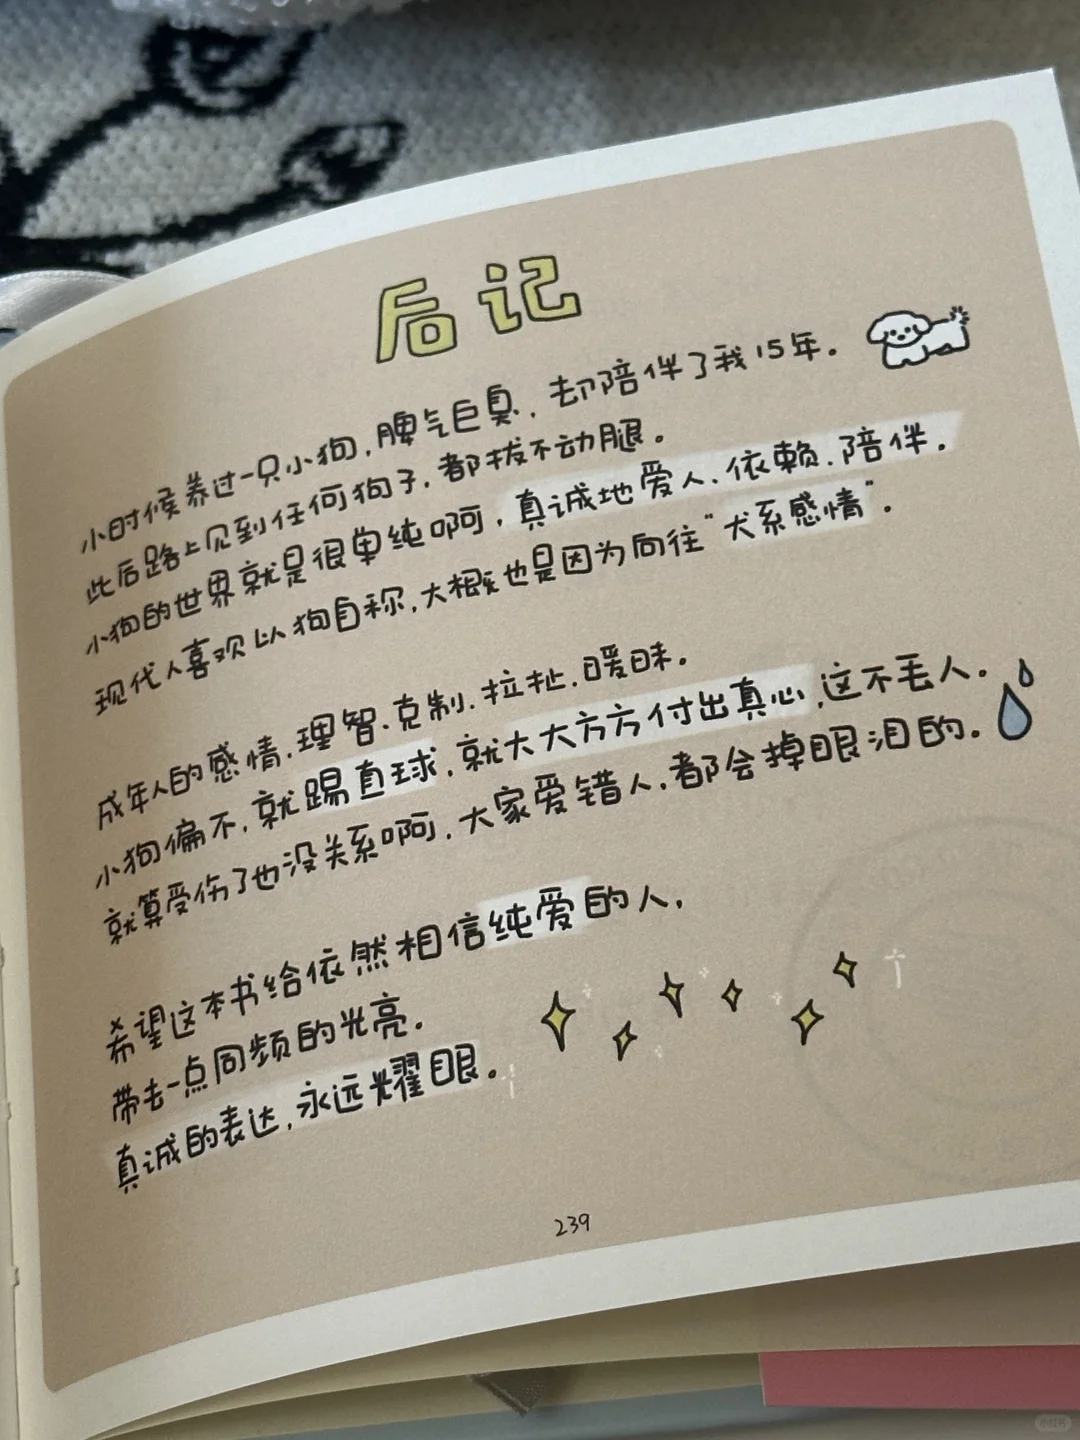 后记
小时候养过一只小狗，脾气巨臭，却陪伴了我15年。
此后路上见到任何狗子，都拔不动腿。
小狗的世界就是很单纯啊，真诚地爱人、依赖、陪伴。
现代人喜欢以狗自称，大概也是因为向往“犬系感情”。
成年人的感情、理智、克制、拉扯、暧昧。
小狗偏不，就踢直球，就大大方方付出真心，这不毛人。
就算受伤了也没关系啊，大家爱错人，都会掉眼泪的。
希望这本书给依然相信纯爱的人，
带去一点同频的光亮。
真诚的表达，永远耀眼。
239
小红书